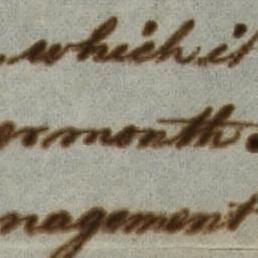 which it
or month
nagement